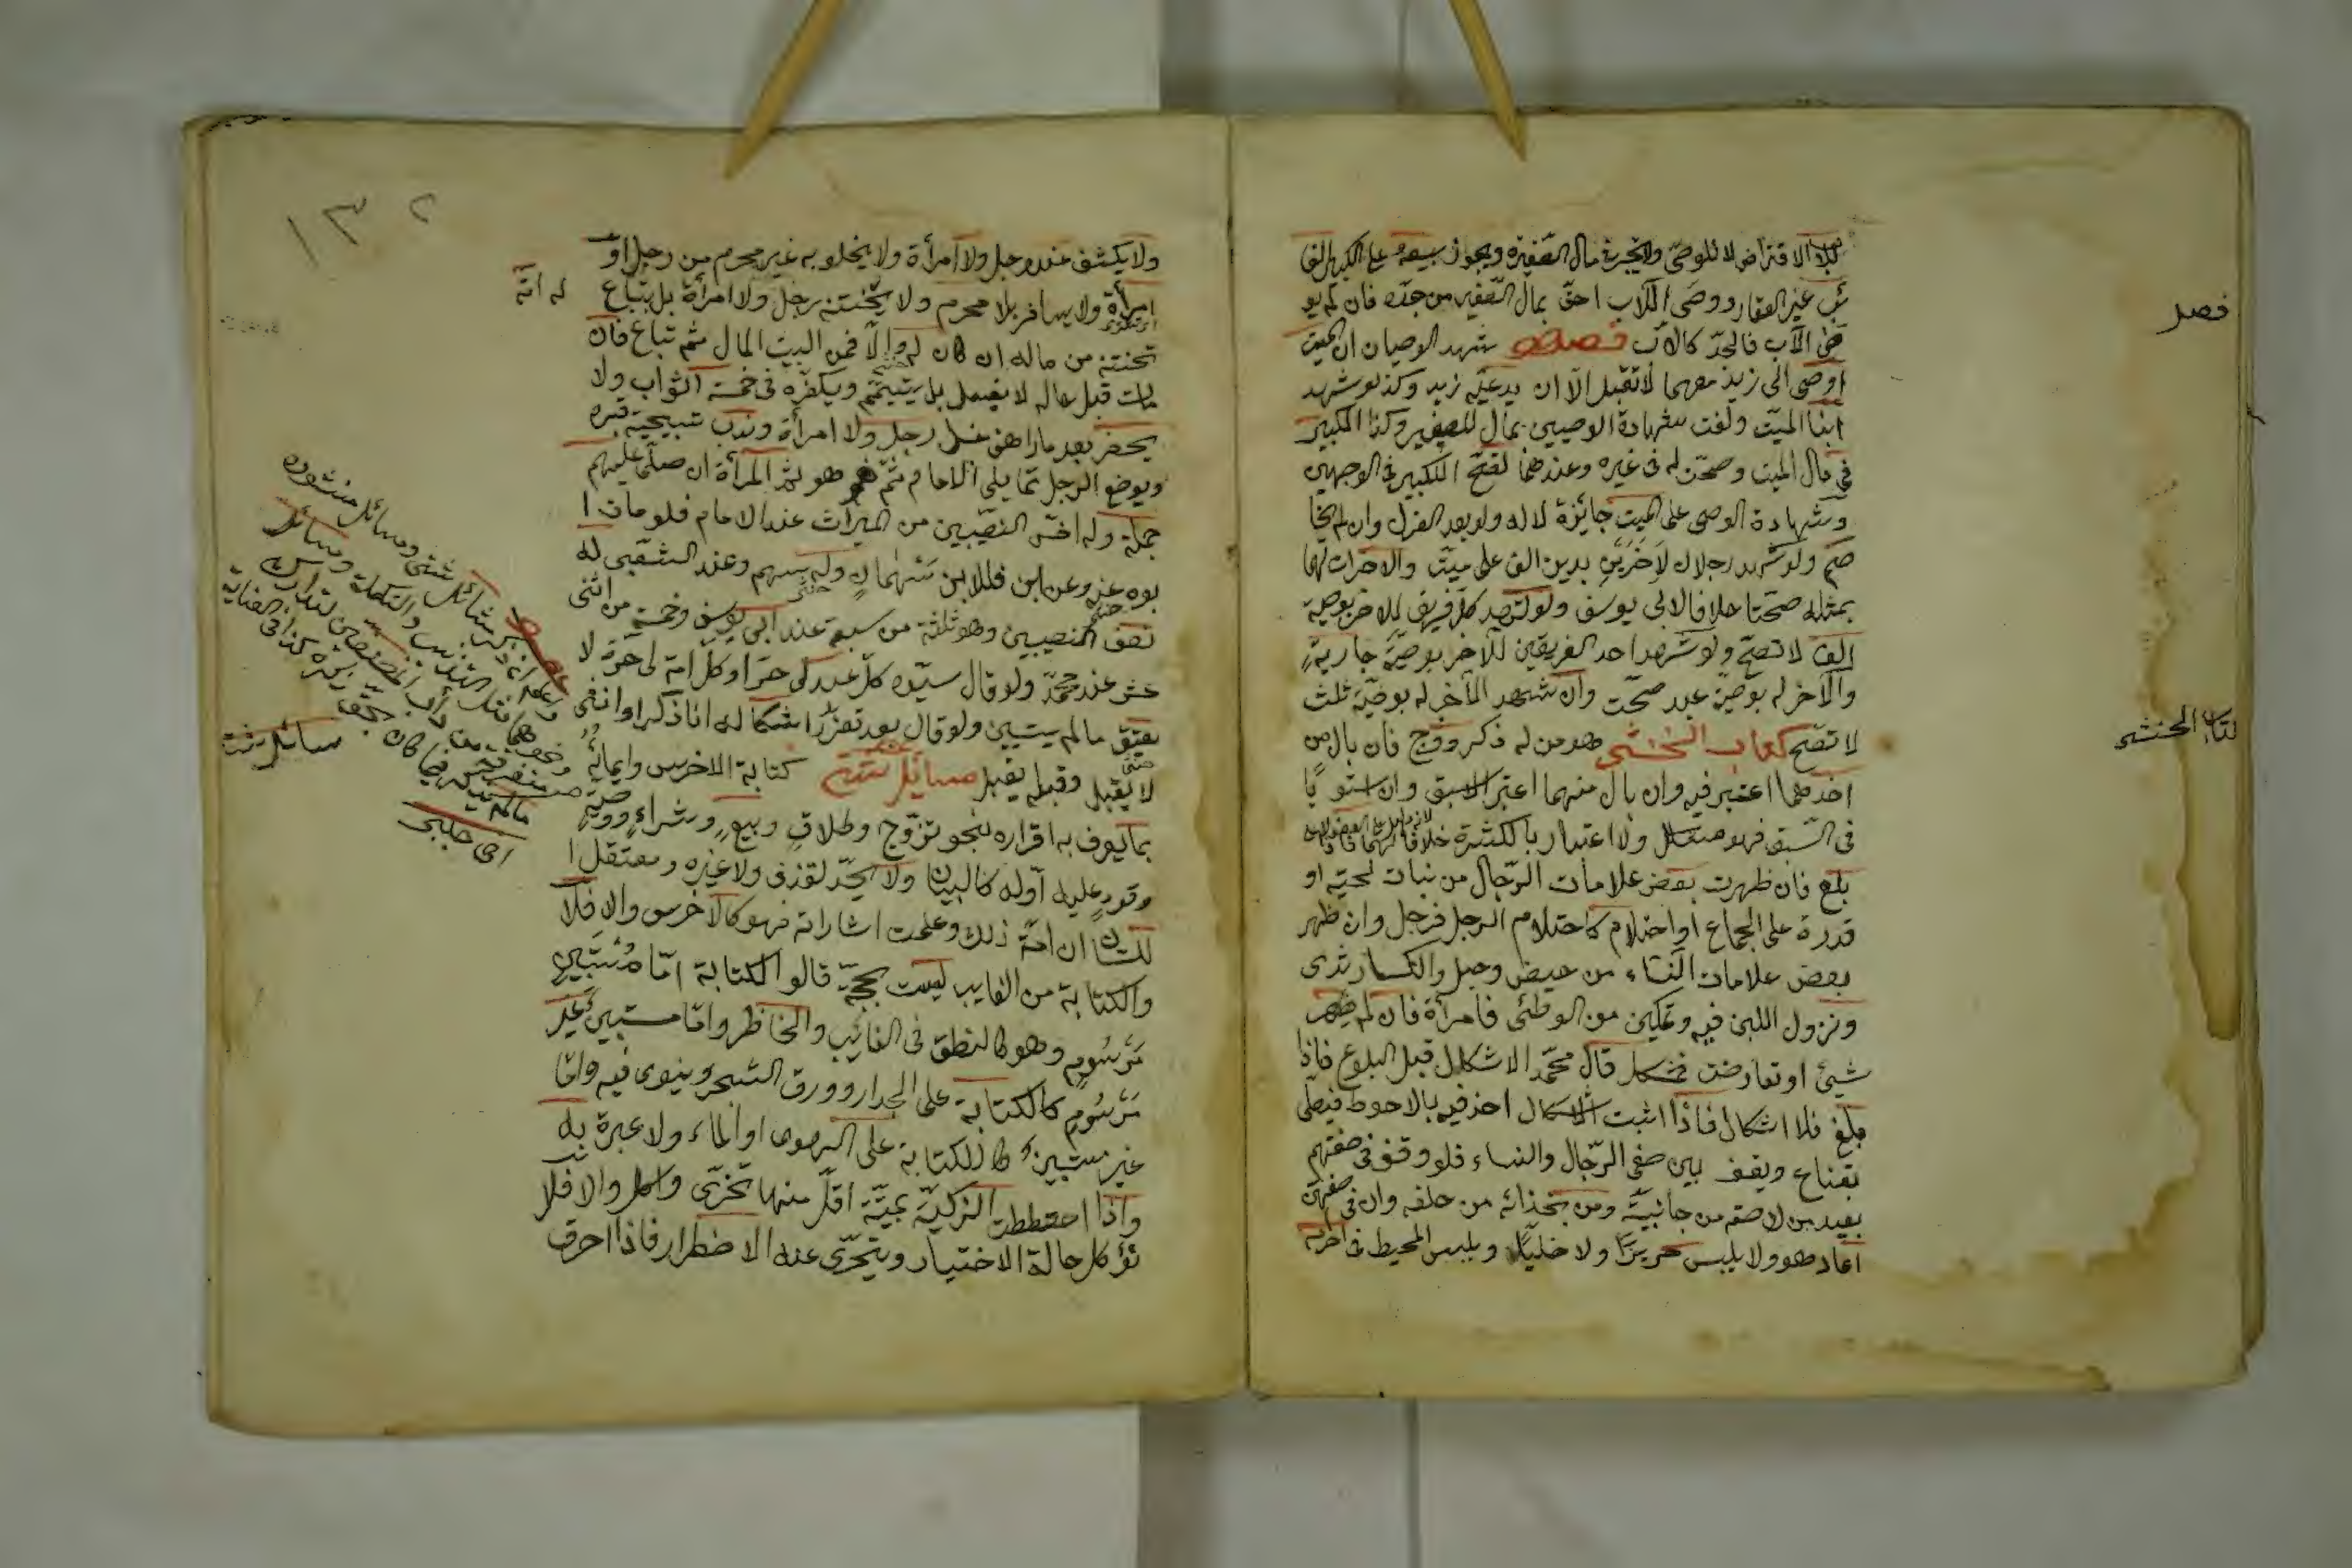 للاب الاقتراض لا للوصي ولا يتجر في مال الصغير ويجوز بيعه على الكبير الغا
ئب غير العقار ووصي الاب احق بمال الصغير من جده فان لم يو
ص الاب فالجد كالاب فصل شهد الوصيان ان الميت
اوصى الى زيد معهما لا تقبل الا ان يدعيه زيد وكذا لو شهد
ابنا الميت ولغت شهادة الوصيين بمال للصغير وكذا للكبير
في مال الميت وصحت له في غيره وعندهما تصح للكبير في الوجهين
وشهادة الوصي على الميت جائزة لا له ولو بعد العزل وان لم يخا
صم ولو شهد رجلان لآخَرَين بدين الف على ميت والآخران لهما
بمثله صحتا خلافا لابي يوسف ولو شهد كل فريق للآخر بوصية
الف لا تصح ولو شهد احد الفريقين للآخر بوصية جارية
والآخر له بوصية عبد صحت وان شهد الآخر له بوصية ثلث
لا تصح كتاب الخنثى هو من له ذكر وفرج فان بال من
احدهما اعتبر فيه وان بال منهما اعتبر الاسبق وان استويا
في السبق فهو مشكل ولا اعتبار بالكثرة خلافا لهما فاذا
بلغ فان ظهرت بعض علامات الرجال من نبات لحية او
قدرة على الجماع او احتلام كاحتلام الرجل فرجل وان ظهر
بعض علامات النساء من حيض وحبل وانكسار ثدي
ونزول اللبن فيه وتمكين من الوطئ فامرأة فان لم يظهر
شيئ او تعارضت فمشكل قال محمد الاشكال قبل البلوغ فاذا
بلغ فلا اشكال فاذا اثبت الاشكال اخذ فيه بالاحوط فيصلي
بقناع ويقف بين صفي الرجال والنساء فلو وقف في صفهم
يعيد من لاصقه من جانبيه ومن بحذائه من خلفه وان في صفهن
اعاد هو ولا يلبس حريرا ولا حليا ويلبس المحيط في احرامه
فصل
كتاب الخنثى
١٣٢
ولا يكشف عند رجل ولا امرأة ولا يخلو به غير محرم من رجل او
امرأة ولا يسافر بلا محرم ولا يختنه رجل ولا امرأة بل يبتاع له امة
تختنه من ماله ان كان له والا فمن البيت المال ثم تباع فان
مات قبل حاله لا يغسل بل يتيمم ويكفن في خمسة اثواب ولا
يحضر بعد ما راهق غسل رجل ولا امرأة وندب تسجية قبره
ويوضع الرجل مما يلي الامام ثم هو ثم المرأة ان صلى عليهم
جملة وله اخس النصيبين من الميراث عند الامام فلو مات ا
بوه عنه وعن ابن فللابن سهمان وله سهم وعند الشعبي له
نصف النصيبين وهو ثلثة من سبعة عند ابي يوسف وخمسة من اثنى
عشر عند محمد ولو قال سيده كل عبد لي حر او كل امة لي حرة لا
يعتق ما لم يتبين ولو قال بعد تقرر اشكاله انا ذكر او انثى
لا يقبل وقبله يقبل مسائل شتى كتابة الاخرس وايمائه
بما يعرف به اقراره بنحو تزوج وطلاق وبيع وشراء ووصية
وقود عليه او له كالبيان ولا يحد لقذف ولا غيره ومعتقل ا
للسان ان امتد ذلك وعلمت اشاراته فهو كالاخرس والا فلا
والكتابة من الغايب ليست بحجة قالوا الكتابة اما مستبين
مرسوم وهو كالنطق في الغائب والحاظر واما مستبين غير
مرسوم كالكتابة على الجدار وورق الشجر وينوى فيه واما
غير مستبين كالكتابة على الهوى او الماء ولا عبرة به
واذا اختلطت الذكية بميتة اقل منها تحرى واكل والا فلا
تؤكل حالة الاختيار ويتحرى عند الاضطرار فاذا احرق
مسائل شتى
اخي جلبي